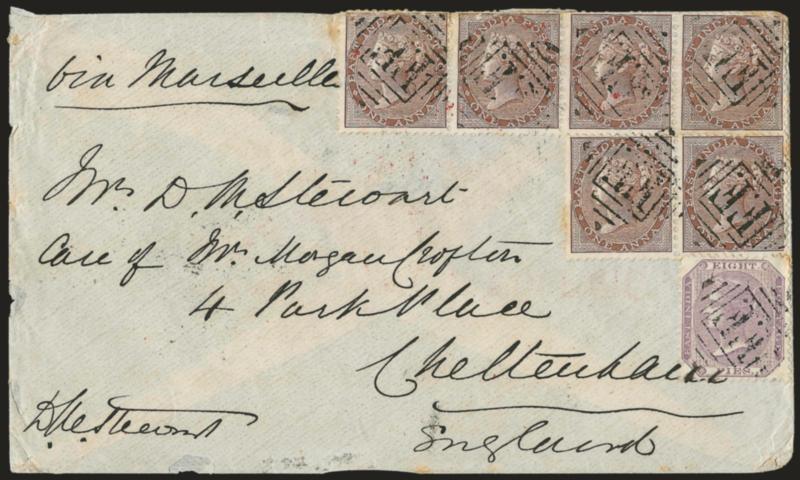 via Marseille
Mrs D. M. Stewart
Care of Mrs Morgan Crofton
4 Park Place
Cheltenham
England
D. M. Stewart
EAST INDIA POSTAGE
ONE ANNA
EAST INDIA POSTAGE
ONE ANNA
EAST INDIA POSTAGE
ONE ANNA
EAST INDIA POSTAGE
ONE ANNA
EAST INDIA POSTAGE
ONE ANNA
EAST INDIA POSTAGE
ONE ANNA
EIGHT
EAST INDIA
PIES